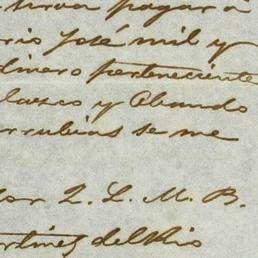 sirva pagar á
rio José mil y
dinero perteneciente
lasco y Obando
rrubias se me
or Q. L. M. B.
artinez del Rio